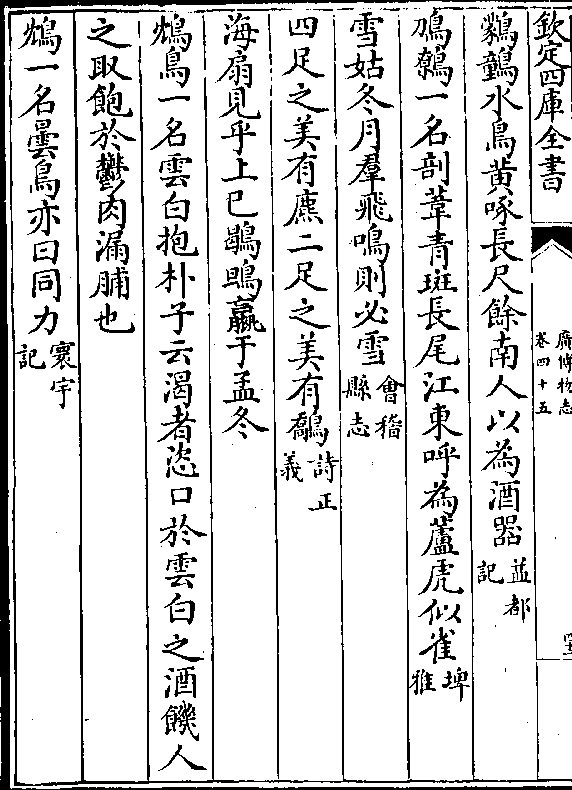 欽定四庫全書
廣博物志
卷四十五
鸂鶒水鳥黄啄長尺餘南人以為酒器益都記
鳭鷯一名剖葦青斑長尾江東呼為蘆虎似雀埤雅
雪姑冬月羣飛鳴則必雪會稽縣志
四足之美有麃二足之美有鷮詩正義
海扇見乎上巳鶡鴠羸于孟冬
鴆鳥一名雲白抱朴子云渴者恣口於雲白之酒饑人
之取飽於鬱肉漏脯也
鴆一名曇鳥亦曰同力寰宇記